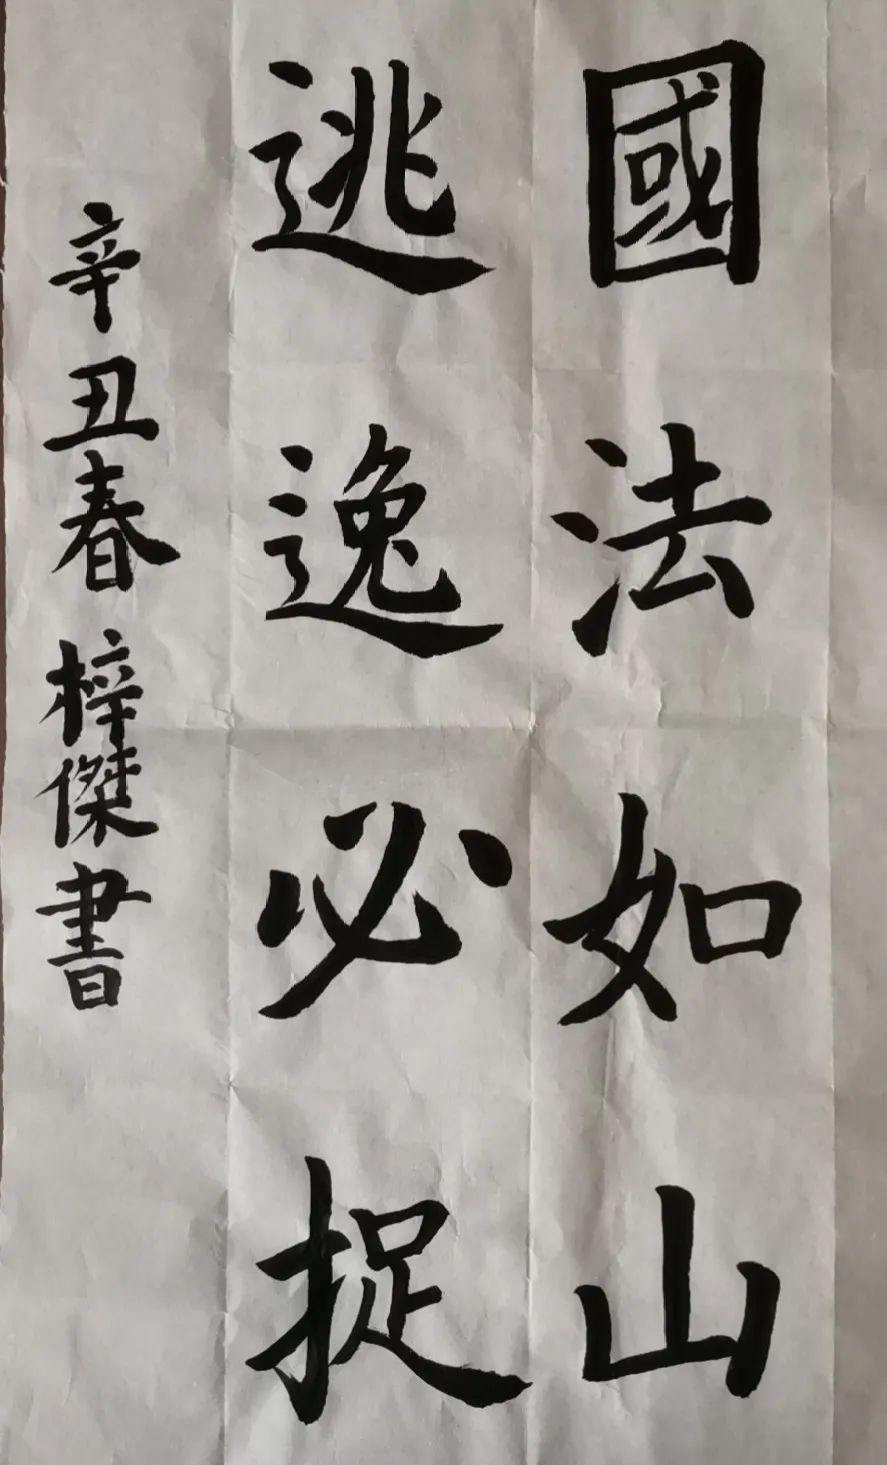 國法如山
逃逸必捉
辛丑春梓傑書